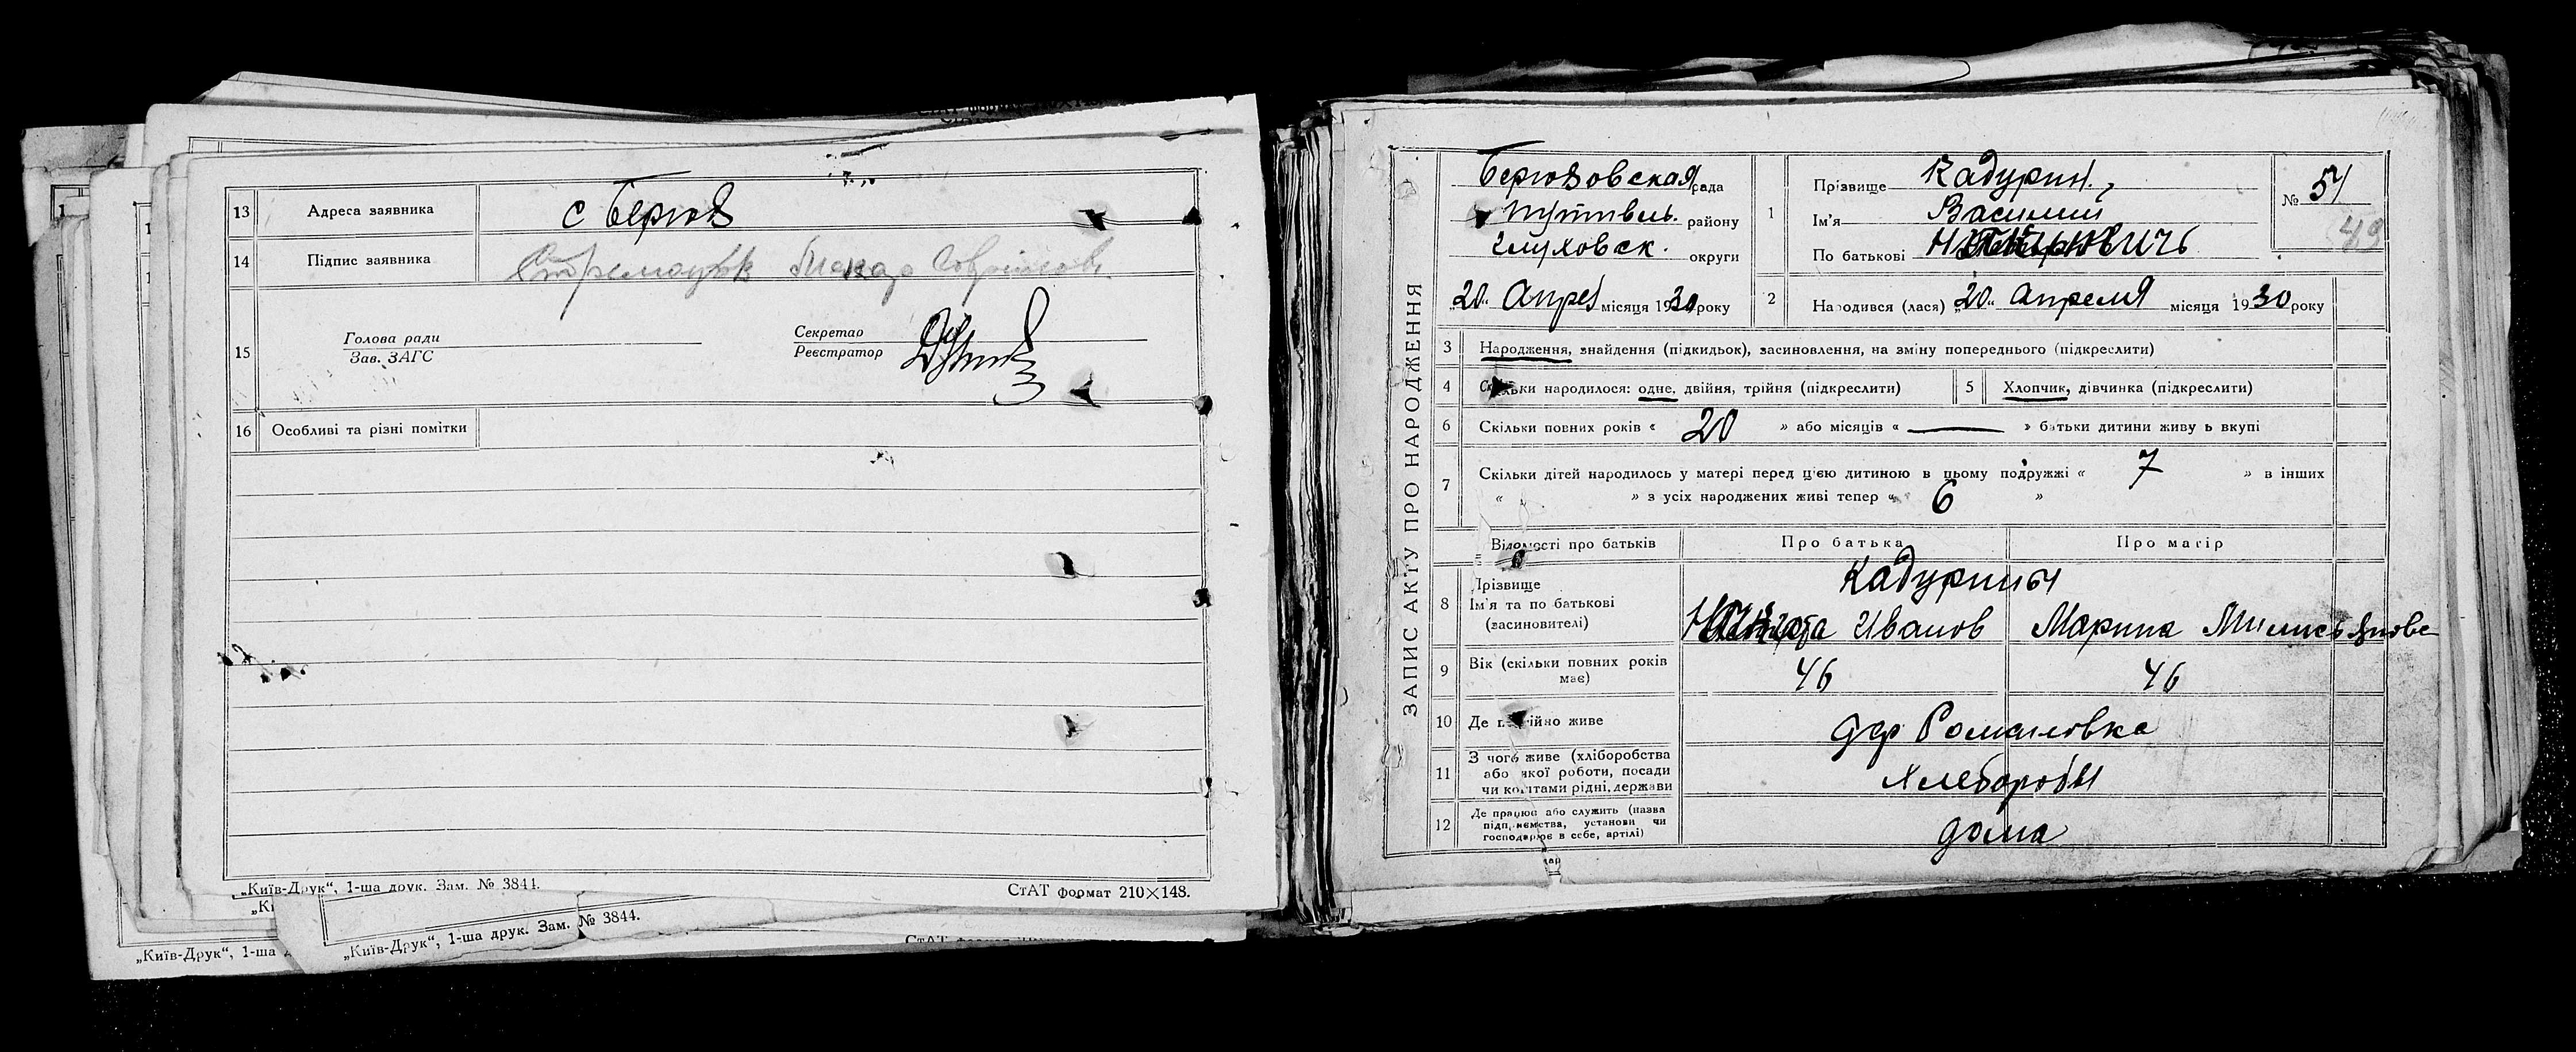 13 Адреса заявника с Берюх
14 Підпис заявника
15 Голова ради
Зав. ЗАГС
Секретар
Реєстратор
16 Особливі та різні помітки
„Київ-Друк“, 1-ша друк. Зам. № 3844.
СтАТ формат 210×148.
„Київ-Друк“, 1-ша друк. Зам. № 3844.
„Київ-Друк“, 1-ша
ЗАПИС АКТУ ПРО НАРОДЖЕННЯ
Берюховская рада
Путивль. району
Глуховск. округи
„20“ Апрел місяця 1930 року
1 Прізвище Кадурин
Ім'я Василий
По батькові
№ 51
49
2 Народився (лася) „20“ Апреля місяця 1930 року
3 Народження, знайдення (підкидьок), засиновлення, на зміну попереднього (підкреслити)
4 Скільки народилося: одне, двійня, трійня (підкреслити)
5 Хлопчик, дівчинка (підкреслити)
6 Скільки повних років « 20 » або місяців « — » батьки дитини живуть вкупі
7 Скільки дітей народилось у матері перед цією дитиною в цьому подружжі « 7 » в інших
« » з усіх народжених живі тепер « 6 »
Відомості про батьків Про батька Про матір
8 Прізвище
Ім'я та по батькові
(засиновителі)
Кадурины
Иванов Марина
9 Вік (скільки повних років має) 46 46
10 Де постійно живе дер Романовка
11 З чого живе (хліборобства
або якої роботи, посади
чи коштами рідні, держави
Хлеборобы
12 Де працює або служить (назва
підприємства, установи чи
господарює в себе, артілі)
дома